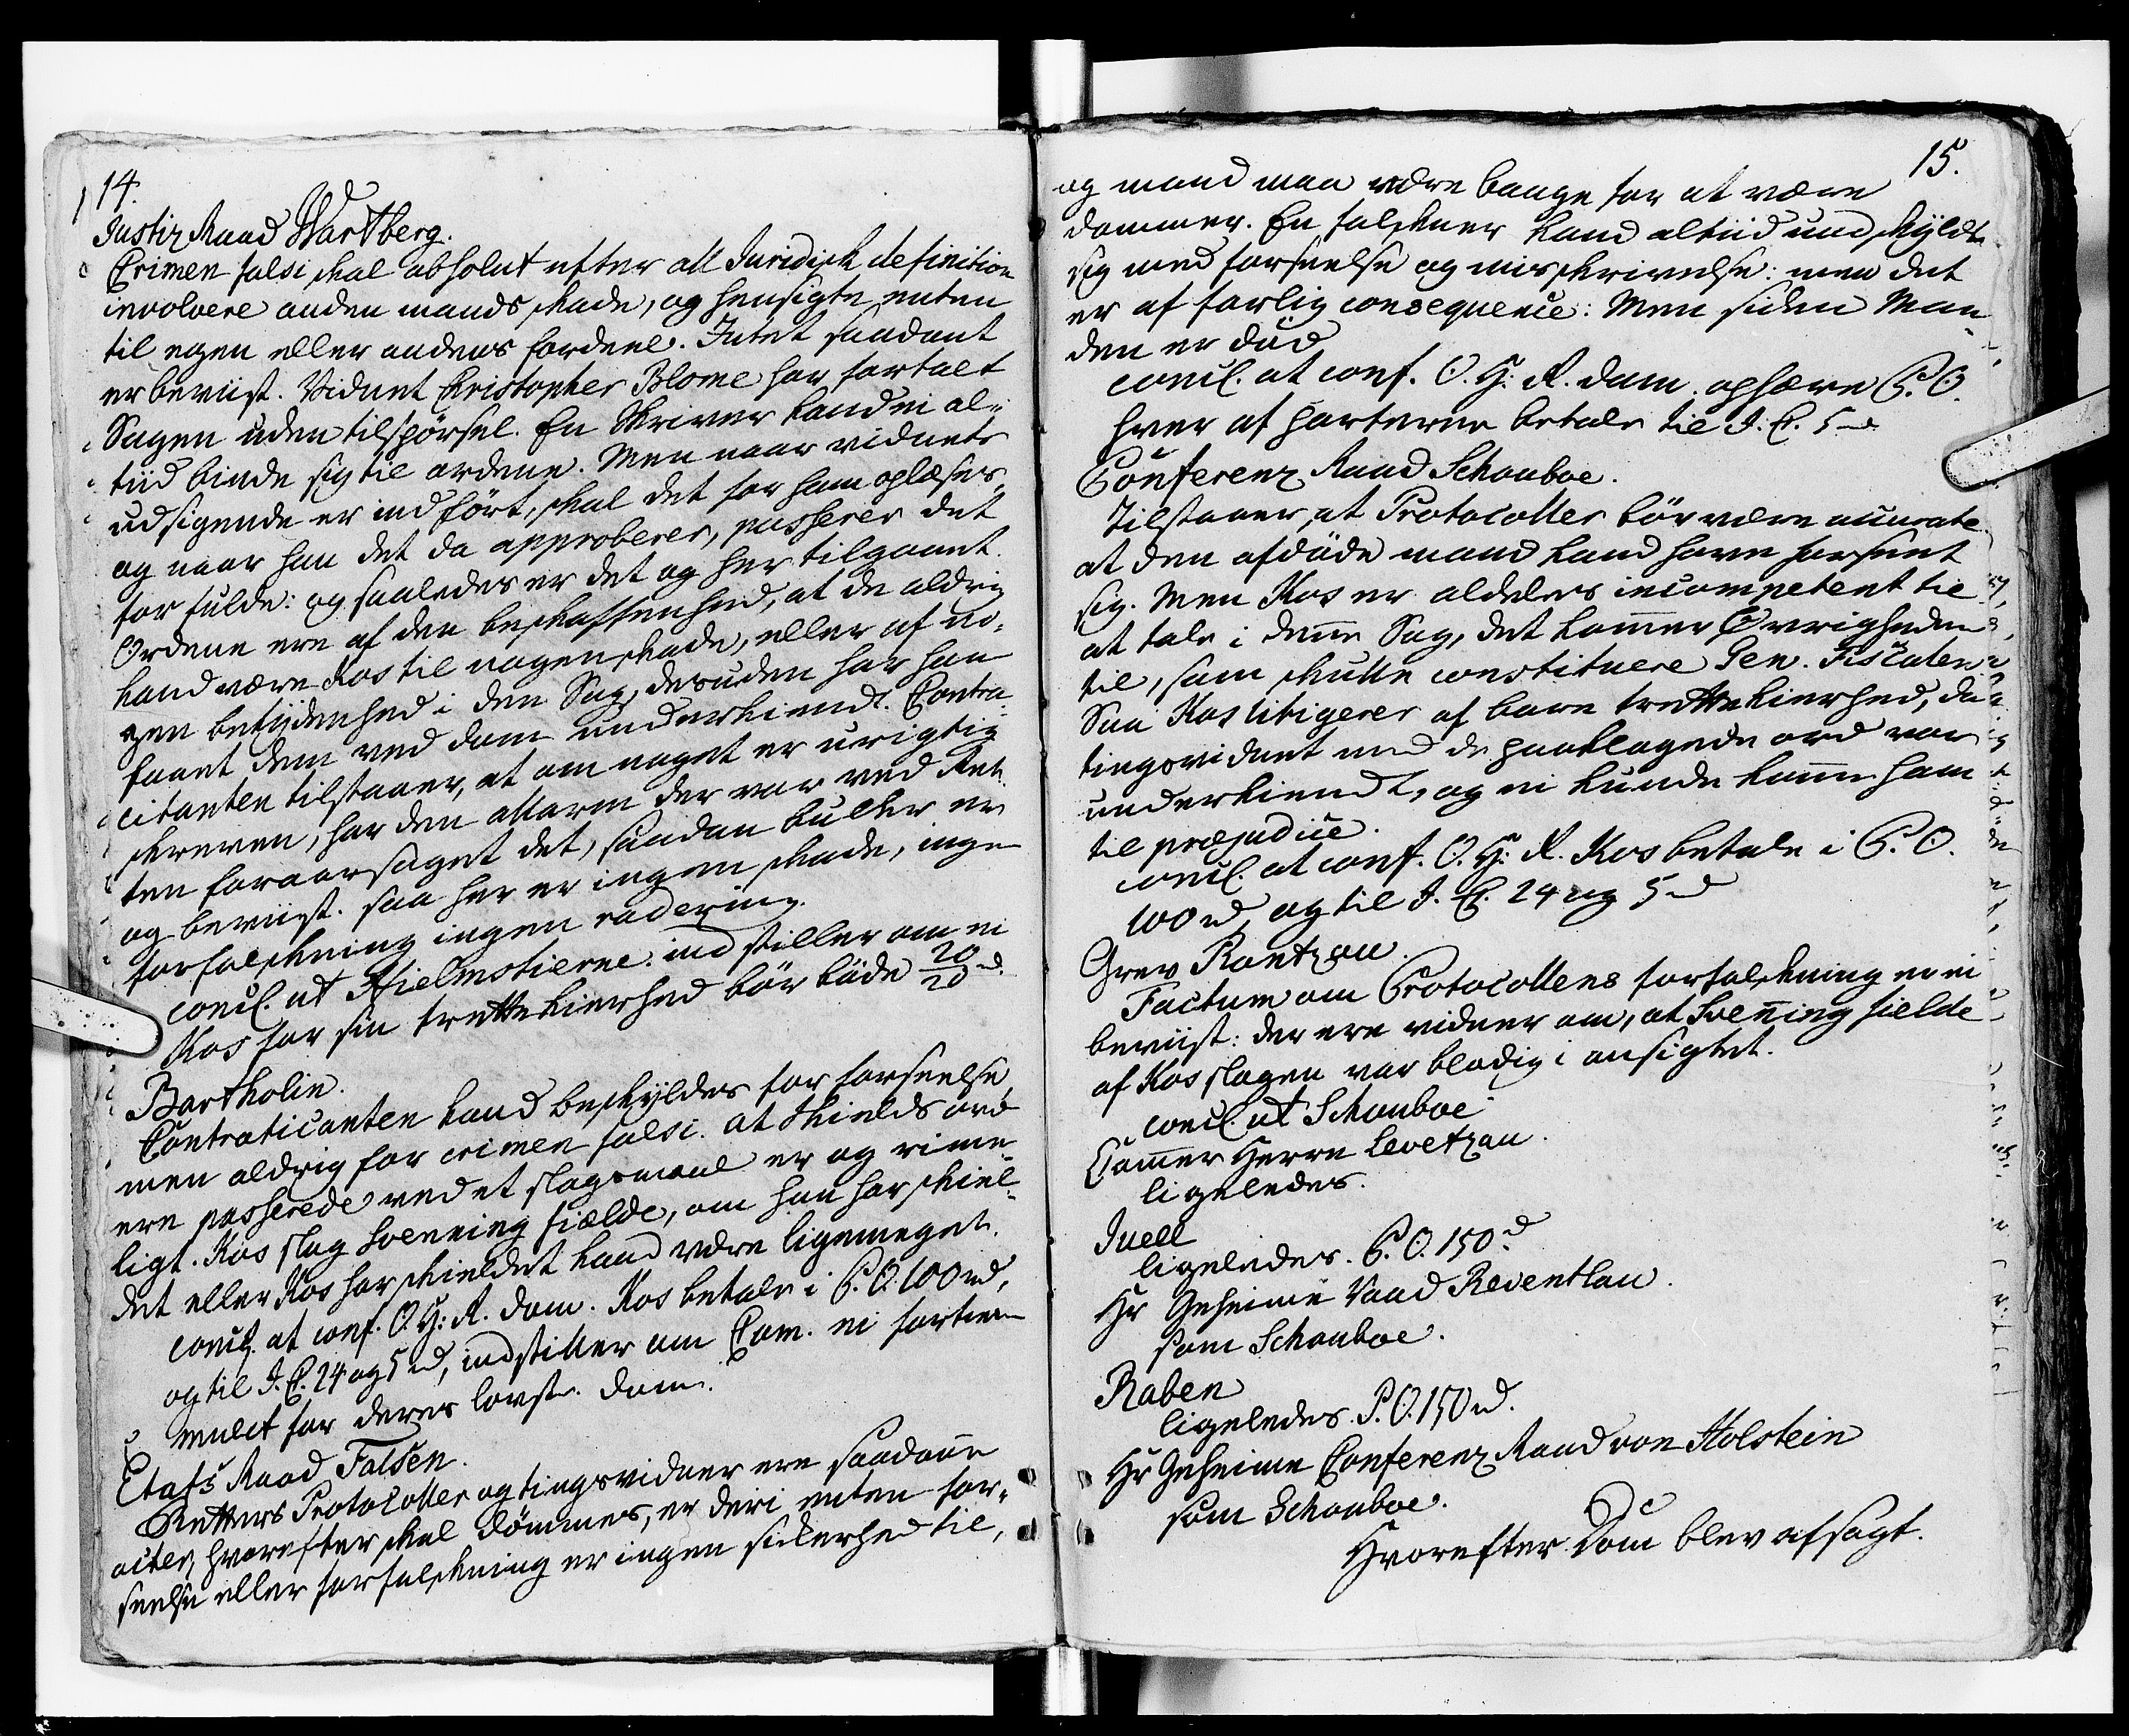 14.
Justiz Raad Wartberg.
Crimen falsi skal absolut efter all Juridisk definition
involvere anden mands skade, og hensigte enten
til egen eller andens fordeel. Intet saadant
er beviist. Vidnet Christopher Blome har fortalt
Sagen uden tilspörsel. En Skriver kand ei al-
tiid binde sig til ordene. Men naar vidnets
udsigende er indfört, skal det for ham oplæses,
og naar han det da approberer, passerer det
for fulde: og saaledes er det og her tilgaaet.
Ordene ere af den beskaffenhed, at de aldrig
kand være Kos til nogen skade, eller af no-
gen betydenhed i den Sag, desuden har han
faaet dem ved dom underkiendt. Contra-
citanten tilstaaer, at om noget er urigtig
skreven, har den allarm der var ved Ret-
ten foraarsaget det, saadan bulder er
og beviist. saa her er ingen skade, ingen
forfalskning ingen radering.
concl. ut Hielmstierne. indstiller om ei
Kos for sin trettekierhed bör böde 20/20 rd.
Bartholin.
Contraticanten kand beskyldes for forseelse,
men aldrig for crimen falsi. at Skields ord
ere passerede ved et slagsmaal er og rime-
ligt. Kos slog Svenning fielde, om han har skiel-
det eller Kos har skieldet kand være ligemeget.
concl. at conf. O. H: R. dom. Kos betale i P. O. 100 rd,
og til J. C. 24 og 5 rd, indstiller om Com. ei fortien
mulct for deres lovst. dom.
Etats Raad Falsen.
Rettens Protocoller og tingsvidner ere saadane
acter, hvorefter skal dömmes, er deri enten for-
seelse eller forfalskning er ingen sikerhed til,
15.
og mand maa være bange for at være
dommer. En falskner kand altiid undskylde
sig med forseelse og misskrivelse: men det
er af farlig consequence: Men siden Man-
den er död
concl. at conf. O. H: R. dom. ophæve P. O.
hver af parterne betale til J: C. 5 rd
Conferenz Raad Schouboe.
Tilstaaer, at Protocoller bör være accurate
at den afdöde mand kand have forseet
sig. Men Kos er aldeles incompetent til
at tale i denne Sag, det kommer Övrigheden
til, som skulle constituere Gen. Fiscalen
Saa Kos litigerer af bare trettekierhed, da
tingsvidnet med de paaklagede ord var
underkiendt, og ei kunde komme ham
til præjudice.
concl. at conf. O. H: R. Kos betale i P. O.
100 rd og til J. C. 24 og 5 rd
Grev Rantzau.
Factum om Protocollens forfalskning er ei
beviist: der ere vidner om, at Svenning fielde
af Kos slagen var blodig i ansigtet.
concl. ut Schouboe
Cammer Herre Levetzau.
ligeledes.
Juell
ligeledes. P. O. 150 rd
Hr Geheime Raad Reventlau.
som Schouboe.
Raben
ligeledes. P. O. 150 rd.
Hr Geheime Conferenz Raad von Holstein
som Schouboe.
Hvorefter Dom blev afsagt.